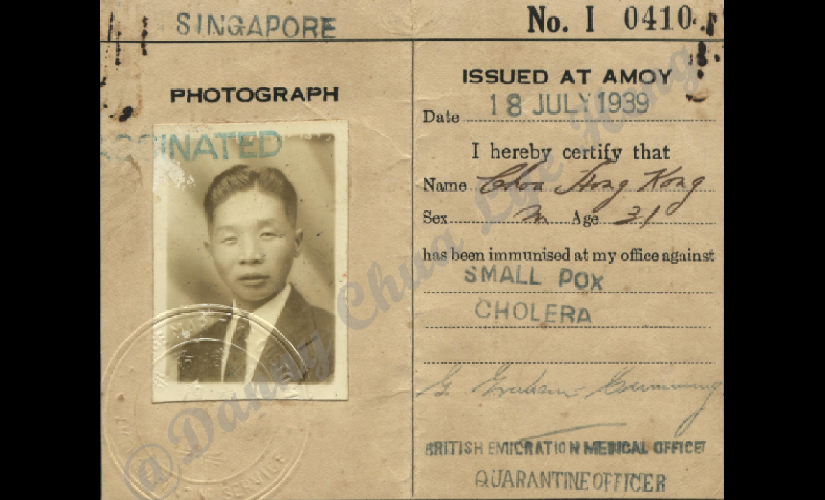 SINGAPORE
No. I 0410
PHOTOGRAPH
VACCINATED
ISSUED AT AMOY
Date 18 JULY 1939
I hereby certify that
Name Choa Hong Kong
Sex M Age 31
has been immunised at my office against
SMALL POX
CHOLERA
G. Graham Cumming
BRITISH EMIGRATION MEDICAL OFFICER
QUARANTINE OFFICER
@Danny Chua Lye Hong